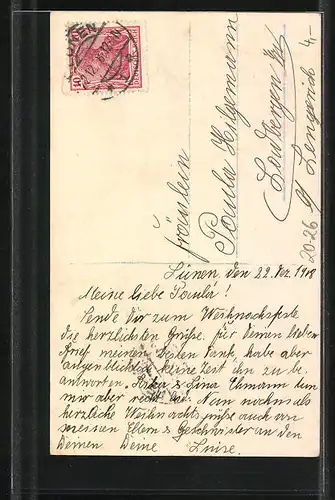 Fräulein
Paula Hilgemann
Leubergen
b/ Lengerich
20-26 4,-
Lünen, den 22. Dez. 1918
Meine liebe Paula!
Sende Dir zum Weihnachtsfeste
die herzlichsten Grüße. Für Deinen lieben
Brief meinen besten Dank, habe aber
augenblicklich keine Zeit ihn zu be-
antworten. & Lina tun
mir aber recht Nun nochmals
herzliche Weihnachtsgrüße auch von
meinen Eltern & Geschwister an den
Deinen Deine Luise.